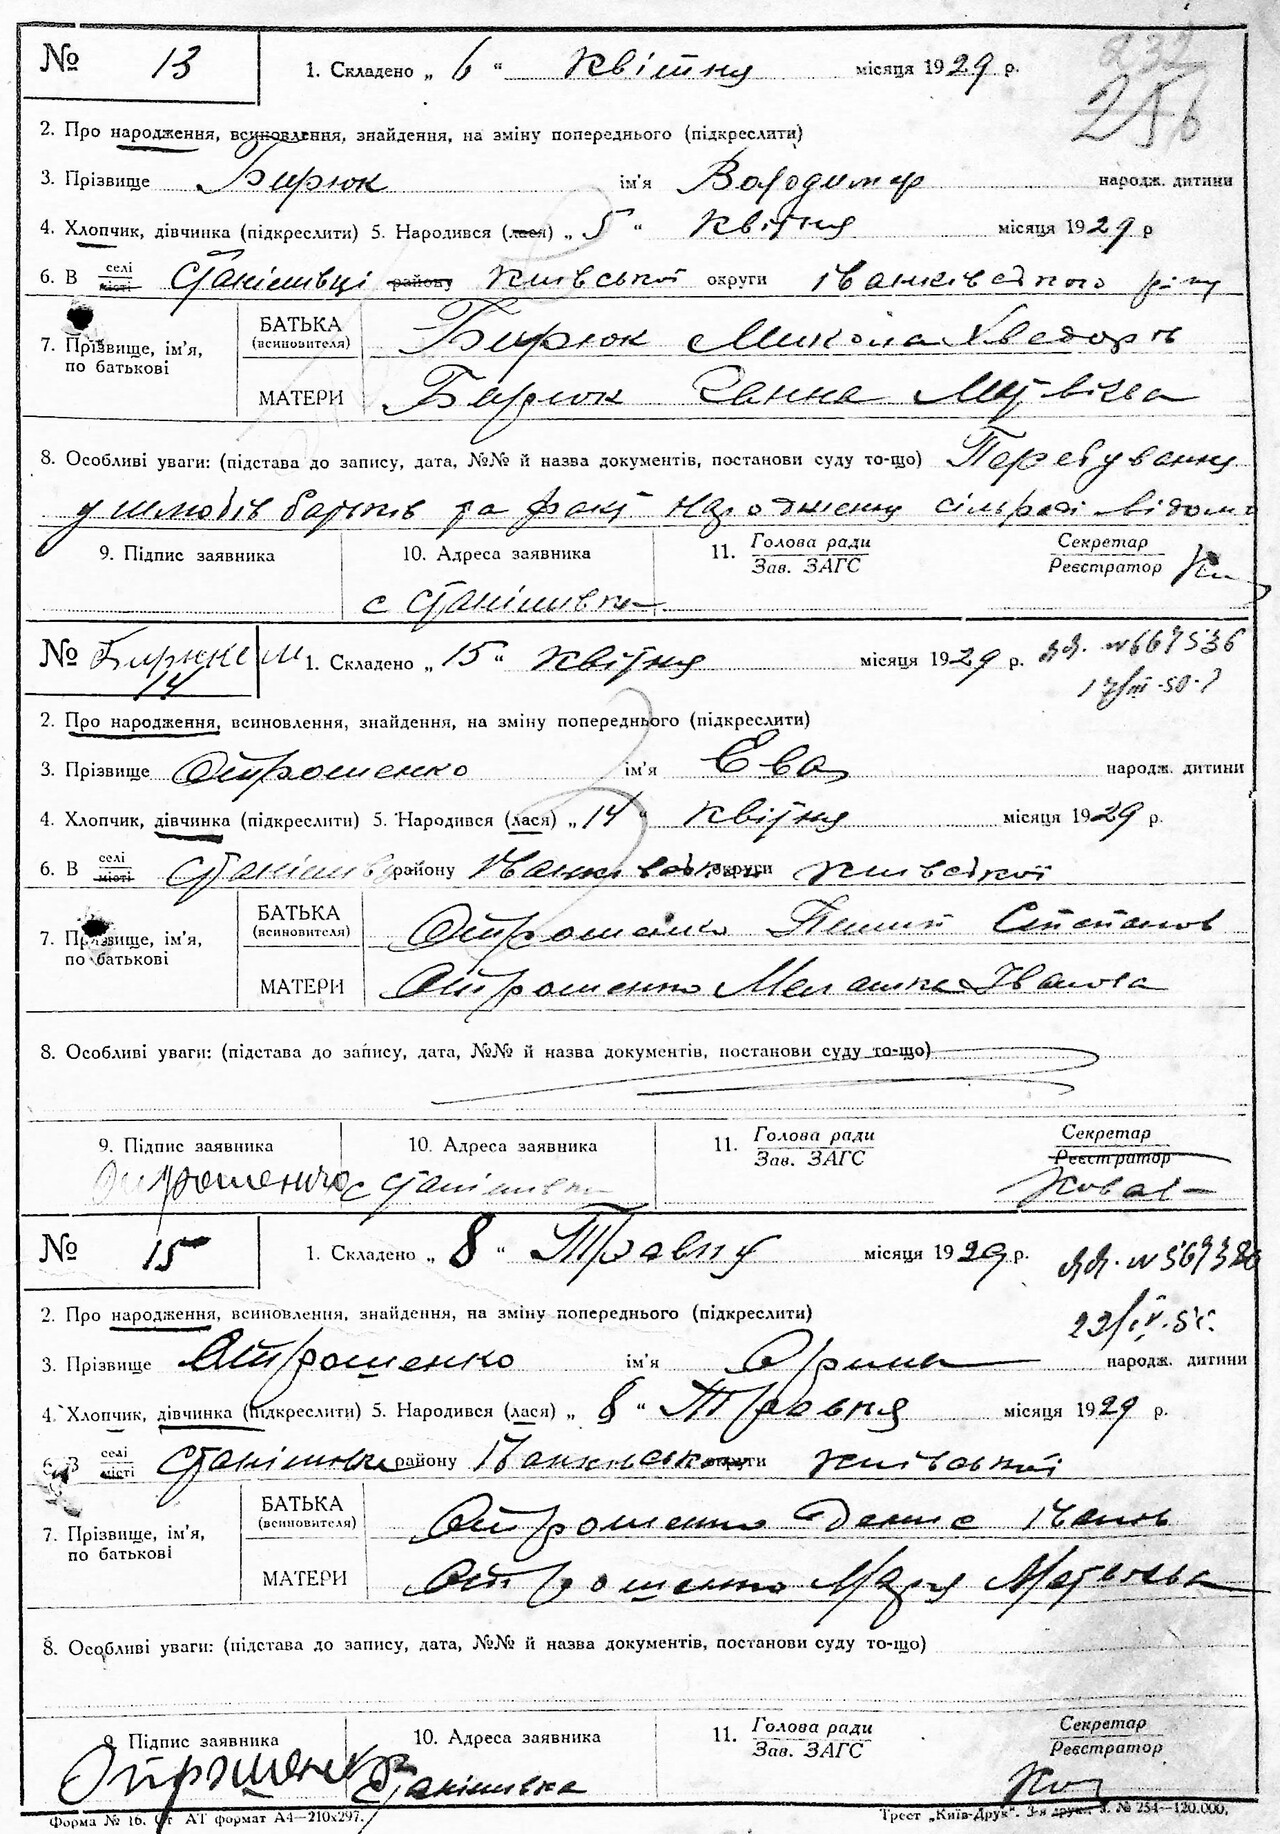 232
256
№ 13 1. Складено „ 6 “ Квітня місяця 1929 р.
2. Про народження, всиновлення, знайдення, на зміну попереднього (підкреслити)
3. Прізвище Бирюк ім'я Володимир народж. дитини
4. Хлопчик, дівчинка (підкреслити) 5. Народився (лася) „ 5 “ Квітня місяця 1929 р
6. В селі місті Станішивці району Київської округи Іванківського р-ну
7. Прізвище, ім'я, по батькові
БАТЬКА (всиновителя) Бирюк Микола Хведорів
МАТЕРИ Бирюк Ганна
8. Особливі уваги: (підстава до запису, дата, №№ й назва документів, постанови суду то-що) Перебування
у шлюбів батьків та факт народження сільраді відомо
9. Підпис заявника 10. Адреса заявника 11. Голова ради Зав. ЗАГС Секретар Реєстратор
с Станішивка
№ 14 1. Складено „ 15 “ Квітня місяця 1929 р. №667536
2. Про народження, всиновлення, знайдення, на зміну попереднього (підкреслити)
3. Прізвище Отрошенко ім'я Ева народж. дитини
4. Хлопчик, дівчинка (підкреслити) 5. Народився (лася) „ 14 “ Квітня місяця 1929 р.
6. В селі місті Станішивка району округи Київської
7. Прізвище, ім'я, по батькові
БАТЬКА (всиновителя) Отрошенко Степанов
МАТЕРИ Отрошенко Мелашка Іванова
8. Особливі уваги: (підстава до запису, дата, №№ й назва документів, постанови суду то-що)
9. Підпис заявника 10. Адреса заявника 11. Голова ради Зав. ЗАГС Секретар Реєстратор
Отрошенко с Станішивка
№ 15 1. Складено „ 8 “ Травня місяця 1929 р.
2. Про народження, всиновлення, знайдення, на зміну попереднього (підкреслити)
3. Прізвище Отрошенко ім'я Орина народж. дитини
4. Хлопчик, дівчинка (підкреслити) 5. Народився (лася) „ 8 “ Травня місяця 1929 р.
6. В селі місті Станішивка району округи Київської
7. Прізвище, ім'я, по батькові
БАТЬКА (всиновителя) Отрошенко Денис Іванів
МАТЕРИ Отрошенко Марія
8. Особливі уваги: (підстава до запису, дата, №№ й назва документів, постанови суду то-що)
9 Підпис заявника 10. Адреса заявника 11. Голова ради Зав. ЗАГС Секретар Реєстратор
Отрошенко Станішивка
Форма № 16. Ст АТ формат А4—210х297. Трест „Київ-Друк“. 3-я друк.. З. № 254—120.000.